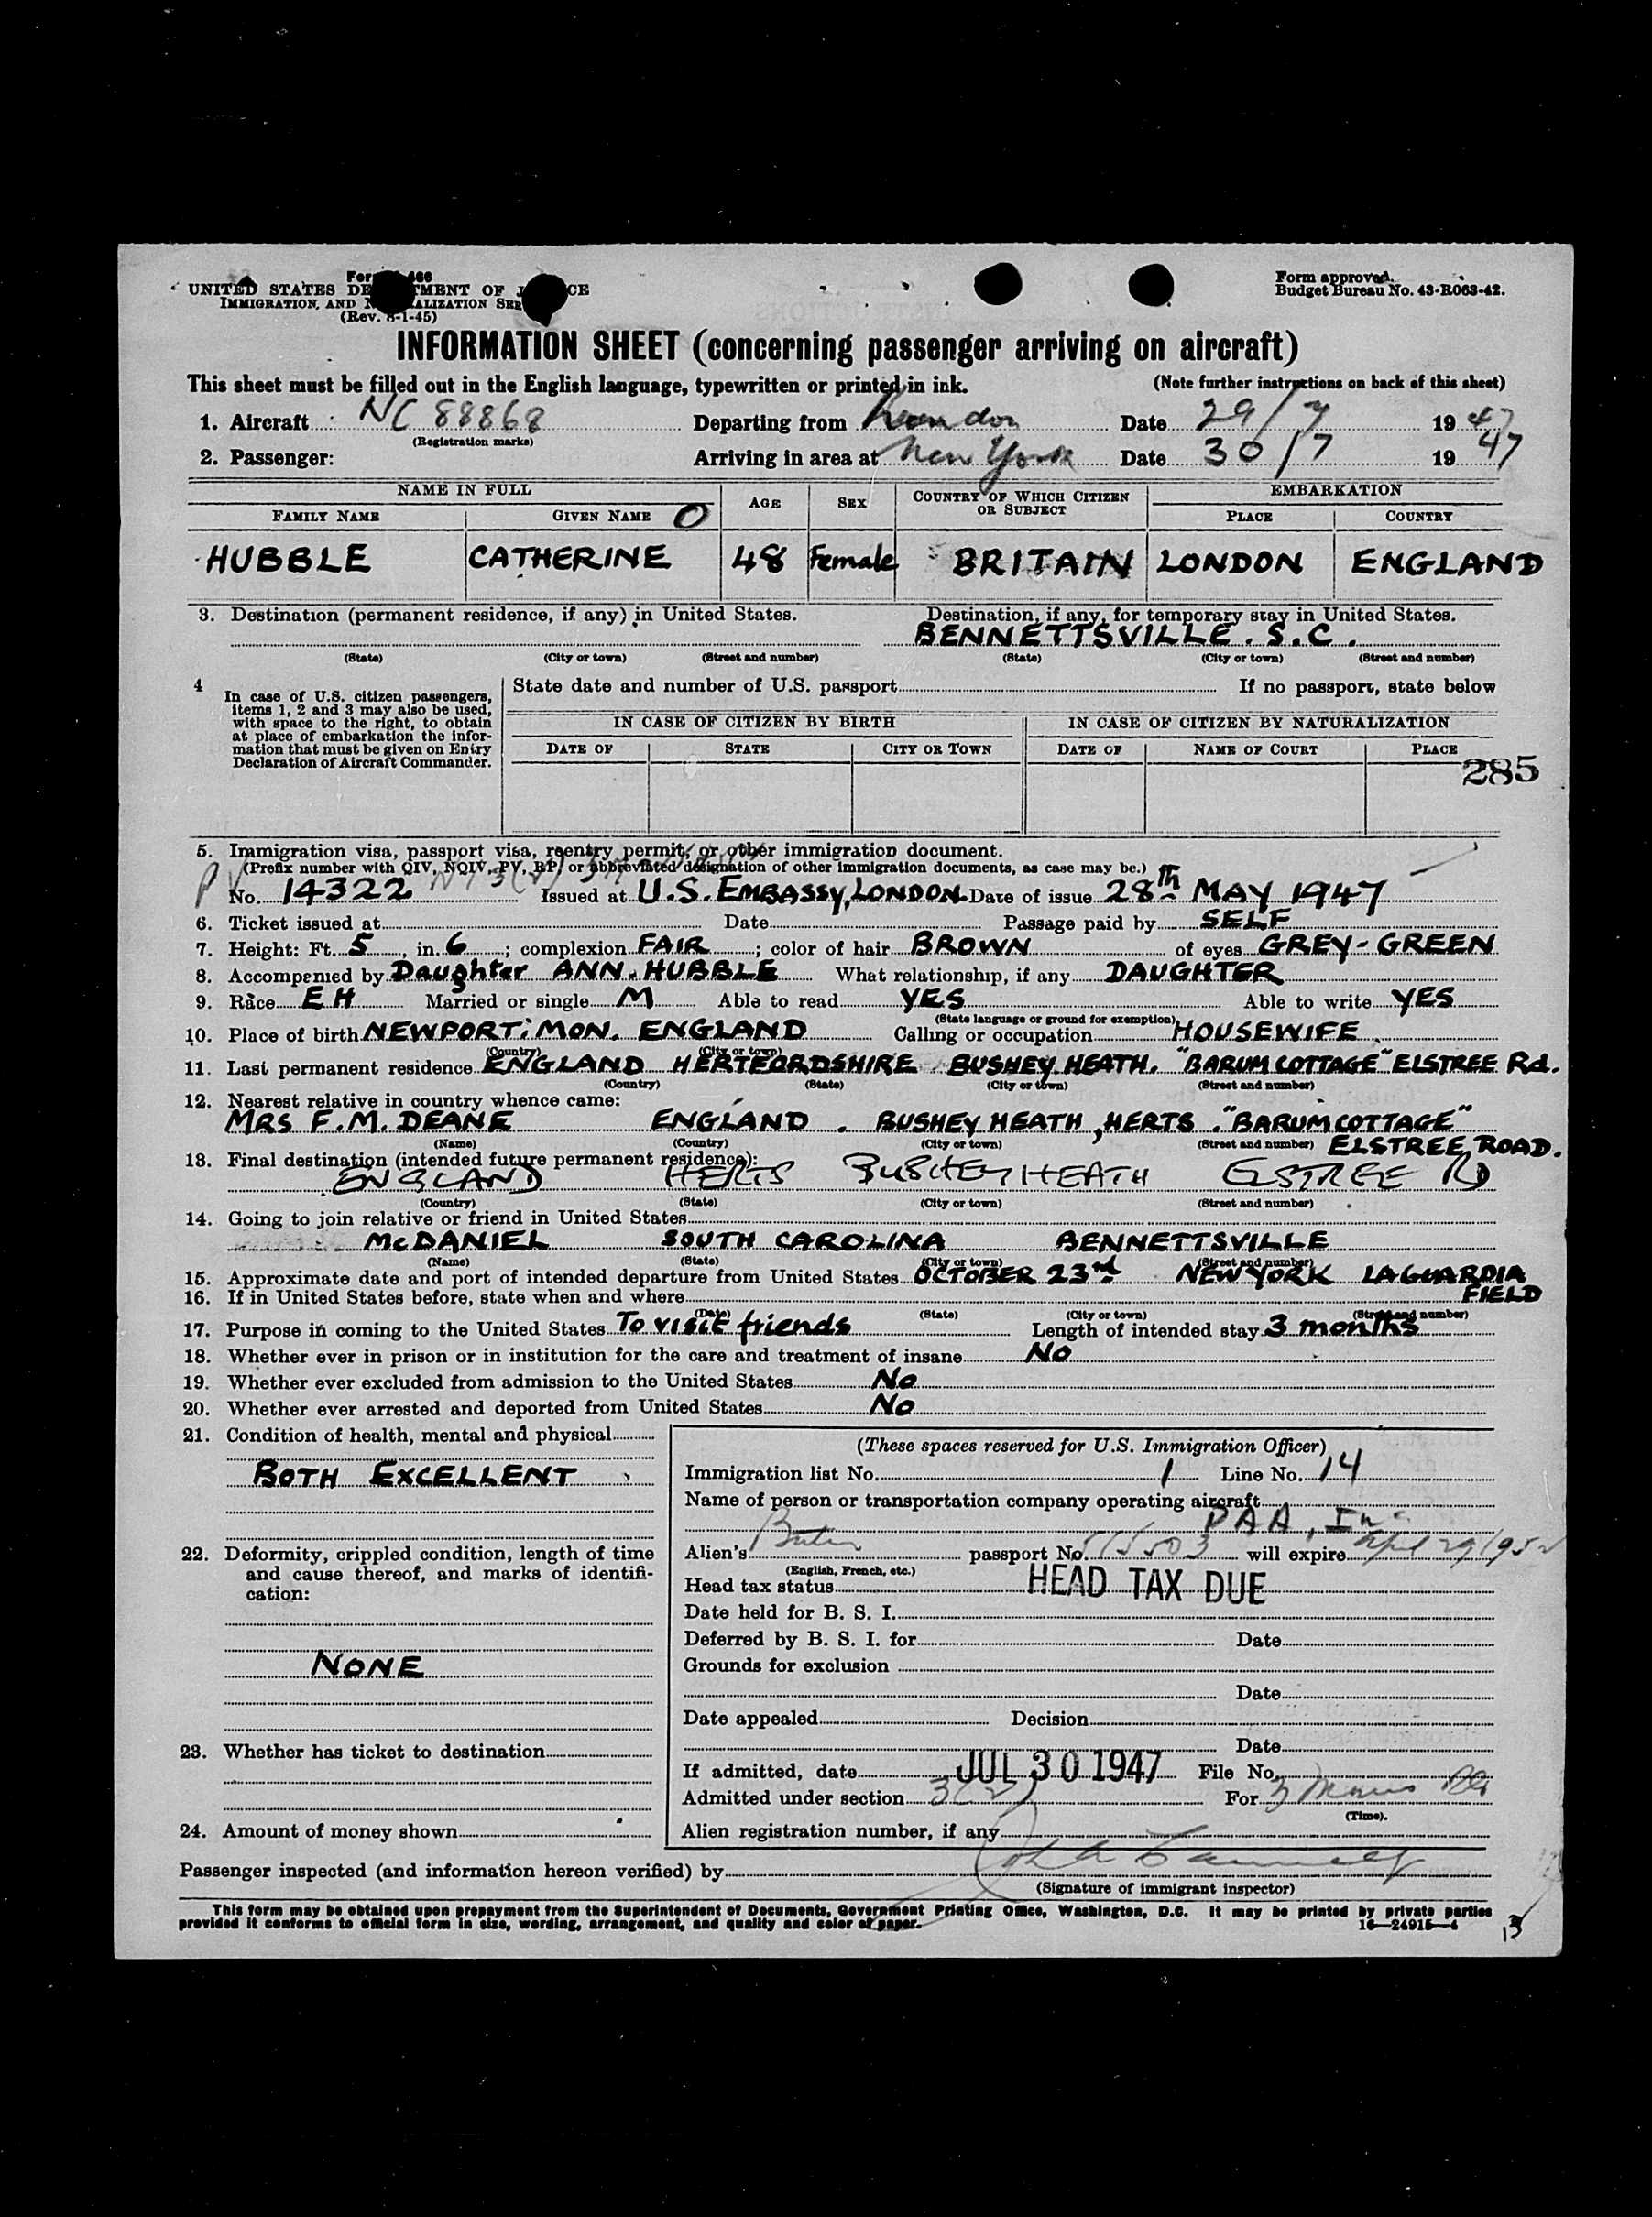 Form 466
UNITED STATES DE MENT OF J CE
IMMIGRATION AND N ALIZATION SER
(Rev. 8-1-45)
Form approved.
Budget Bureau No. 43-R063-42.
INFORMATION SHEET (concerning passenger arriving on aircraft)
This sheet must be filled out in the English language, typewritten or printed in ink. (Note further instructions on back of this sheet)
1. Aircraft NC 88868 Departing from London Date 29/7 1947
(Registration marks)
2. Passenger: Arriving in area at New York Date 30/7 1947
NAME IN FULL AGE SEX COUNTRY OF WHICH CITIZEN OR SUBJECT EMBARKATION
FAMILY NAME GIVEN NAME O PLACE COUNTRY
HUBBLE CATHERINE 48 Female BRITAIN LONDON ENGLAND
3. Destination (permanent residence, if any) in United States. Destination, if any, for temporary stay in United States.
BENNETTSVILLE. S.C.
(State) (City or town) (Street and number) (State) (City or town) (Street and number)
4 In case of U.S. citizen passengers, items 1, 2 and 3 may also be used, with space to the right, to obtain at place of embarkation the information that must be given on Entry Declaration of Aircraft Commander.
State date and number of U.S. passport If no passport, state below
IN CASE OF CITIZEN BY BIRTH IN CASE OF CITIZEN BY NATURALIZATION
DATE OF STATE CITY OR TOWN DATE OF NAME OF COURT PLACE
285
5. Immigration visa, passport visa, reentry permit, or other immigration document.
(Prefix number with QIV, NQIV, PV, RP, or abbreviated designation of other immigration documents, as case may be.)
PV No. 14322 Issued at U.S. EMBASSY, LONDON. Date of issue 28th MAY 1947
6. Ticket issued at Date Passage paid by SELF
7. Height: Ft. 5, in. 6; complexion FAIR; color of hair BROWN of eyes GREY-GREEN
8. Accompanied by Daughter ANN. HUBBLE What relationship, if any DAUGHTER
9. Race EH Married or single M Able to read YES Able to write YES
(State language or ground for exemption)
10. Place of birth NEWPORT: MON. ENGLAND Calling or occupation HOUSEWIFE
(Country) (City or town)
11. Last permanent residence ENGLAND HERTFORDSHIRE BUSHEY HEATH. "BARUM COTTAGE" ELSTREE Rd.
(Country) (State) (City or town) (Street and number)
12. Nearest relative in country whence came:
MRS F.M. DEANE ENGLAND. BUSHEY HEATH, HERTS. "BARUM COTTAGE"
(Name) (Country) (City or town) (Street and number) ELSTREE ROAD.
13. Final destination (intended future permanent residence):
ENGLAND HERTS BUSHEY HEATH ELSTREE RD
(Country) (State) (City or town) (Street and number)
14. Going to join relative or friend in United States
McDANIEL SOUTH CAROLINA BENNETTSVILLE
(Name) (State) (City or town) (Street and number)
15. Approximate date and port of intended departure from United States OCTOBER 23rd NEW YORK LAGUARDIA
FIELD
16. If in United States before, state when and where
(Date) (State) (City or town) (Street and number)
17. Purpose in coming to the United States To visit friends Length of intended stay 3 months
18. Whether ever in prison or in institution for the care and treatment of insane No
19. Whether ever excluded from admission to the United States No
20. Whether ever arrested and deported from United States No
21. Condition of health, mental and physical
BOTH EXCELLENT
22. Deformity, crippled condition, length of time
and cause thereof, and marks of identifi-
cation:
NONE
23. Whether has ticket to destination
24. Amount of money shown
(These spaces reserved for U.S. Immigration Officer)
Immigration list No. 1 Line No. 14
Name of person or transportation company operating aircraft
PAA, Inc
Alien's passport No. will expire April 29 1952
(English, French, etc.)
Head tax status HEAD TAX DUE
Date held for B. S. I.
Deferred by B. S. I. for Date
Grounds for exclusion
Date
Date appealed Decision
Date
If admitted, date JUL 30 1947 File No.
Admitted under section 3(2) For 3
(Time).
Alien registration number, if any
Passenger inspected (and information hereon verified) by
(Signature of immigrant inspector)
This form may be obtained upon prepayment from the Superintendent of Documents, Government Printing Office, Washington, D.C. It may be printed by private parties
provided it conforms to official form in size, wording, arrangement, and quality and color of paper. 16—24915—4
13